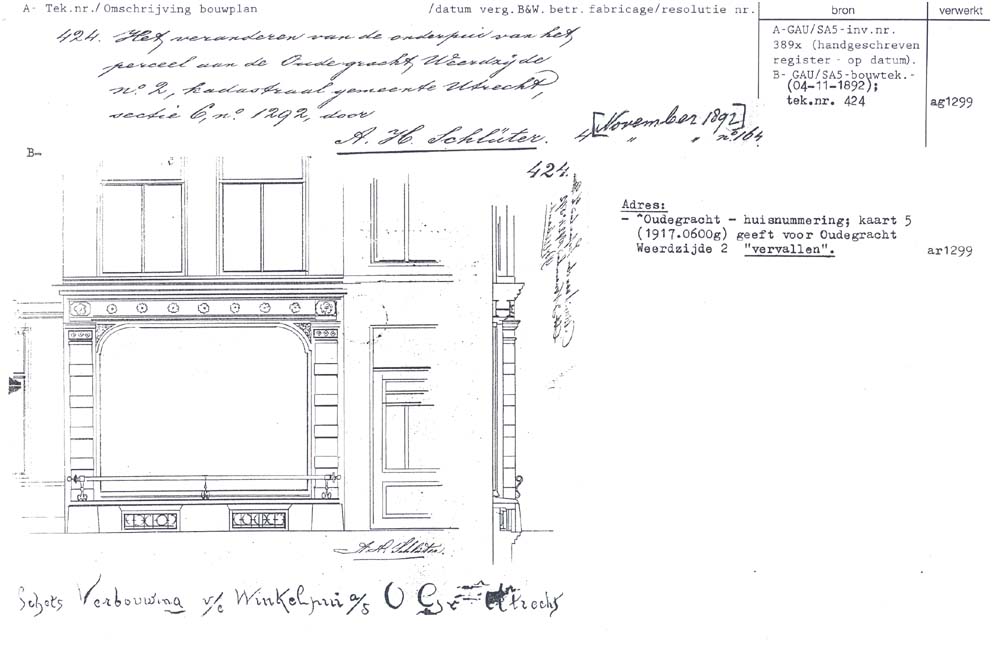 A- Tek.nr./ Omschrijving bouwplan /datum verg.B&W.betr.fabricage/resolutie nr. bron verwerkt
424. Het veranderen van de onderpui van het
perceel aan de Oudegracht, Weerdzijde
no. 2, kadastraal gemeente Utrecht,
sectie C, no. 1292, door
A. H. Schlüter.
4 [November 1892]
" " no 164.
A-GAU/SA5-inv.nr.
389x (handgeschreven
register - op datum).
B- GAU/SA5-bouwtek.-
(04-11-1892);
tek.nr. 424
ag1299
B-
424.
Adres:
- ^Oudegracht - huisnummering; kaart 5
(1917.0600g) geeft voor Oudegracht
Weerdzijde 2 "vervallen".
ar1299
A.H. Schlüter.
Schets Verbouwing v/e Winkelpui a/d O Gr Utrecht